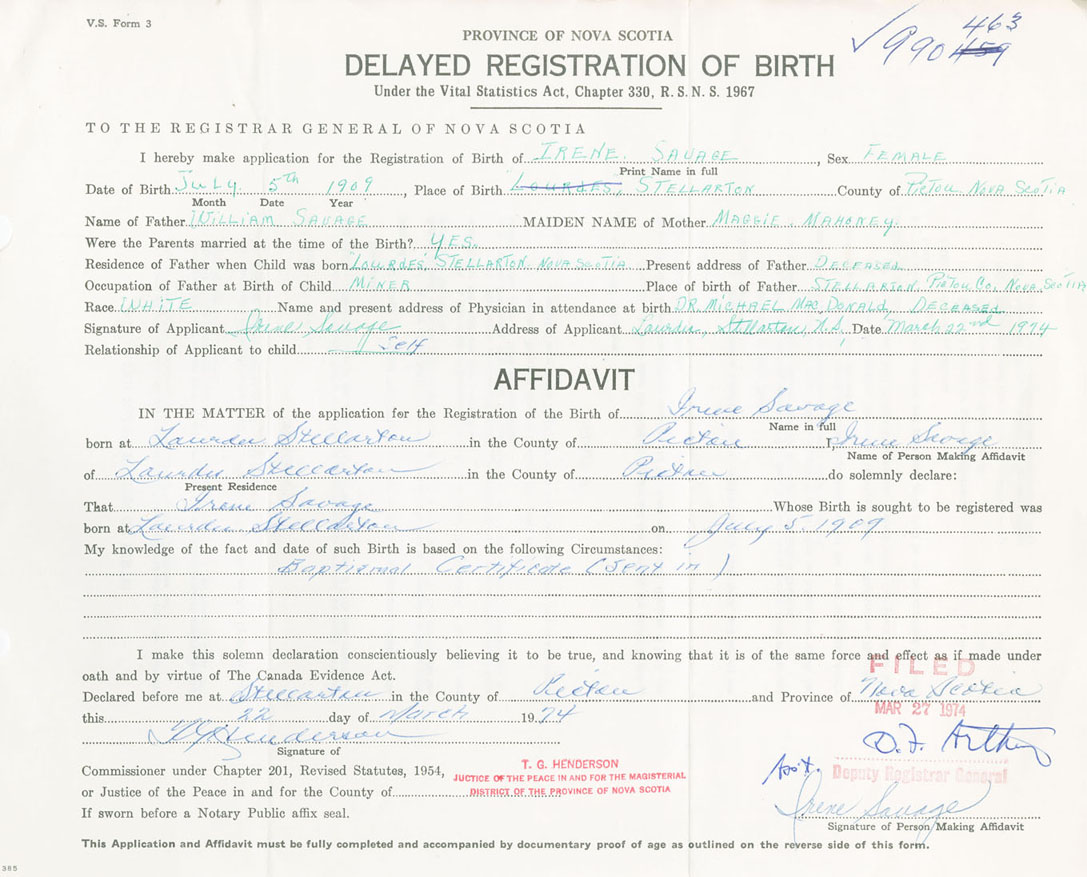 V.S. Form 3
463
✓ 990459
PROVINCE OF NOVA SCOTIA
DELAYED REGISTRATION OF BIRTH
Under the Vital Statistics Act, Chapter 330, R. S. N. S. 1967
TO THE REGISTRAR GENERAL OF NOVA SCOTIA
I hereby make application for the Registration of Birth of IRENE. SAVAGE, Sex FEMALE
Print Name in full
Date of Birth July 5th 1909, Place of Birth LOURDES, STELLARTON County of PICTOU, NOVA SCOTIA
Month Date Year
Name of Father WILLIAM SAVAGE MAIDEN NAME of Mother MAGGIE. MAHONEY.
Were the Parents married at the time of the Birth? YES.
Residence of Father when Child was born LOURDES, STELLARTON, NOVA SCOTIA Present address of Father DECEASED
Occupation of Father at Birth of Child MINER Place of birth of Father STELLARTON, PICTOU CO. NOVA SCOTIA
Race WHITE Name and present address of Physician in attendance at birth DR. MICHAEL MACDONALD, DECEASED
Signature of Applicant Irene Savage Address of Applicant Lourdes, Stellarton, N.S, Date March 22nd 1974
Relationship of Applicant to child Self
AFFIDAVIT
IN THE MATTER of the application for the Registration of the Birth of Irene Savage
Name in full
born at Lourdes Stellarton in the County of Pictou I, Irene Savage
Name of Person Making Affidavit
of Lourdes Stellarton in the County of Pictou do solemnly declare:
Present Residence
That Irene Savage Whose Birth is sought to be registered was
born at Lourdes Stellarton on July 5. 1909
My knowledge of the fact and date of such Birth is based on the following Circumstances:
Baptismal Certificate (Sent in)
I make this solemn declaration conscientiously believing it to be true, and knowing that it is of the same force and effect as if made under
oath and by virtue of The Canada Evidence Act.
FILED
Declared before me at Stellarton in the County of Pictou and Province of Nova Scotia
MAR 27 1974
this 22 day of March 1974
TG Henderson
Signature of
D. F. Arthy
Asst. Deputy Registrar General
Commissioner under Chapter 201, Revised Statutes, 1954,
or Justice of the Peace in and for the County of
T. G. HENDERSON
JUSTICE OF THE PEACE IN AND FOR THE MAGISTERIAL
DISTRICT OF THE PROVINCE OF NOVA SCOTIA
If sworn before a Notary Public affix seal.
Irene Savage
Signature of Person Making Affidavit
This Application and Affidavit must be fully completed and accompanied by documentary proof of age as outlined on the reverse side of this form.
385